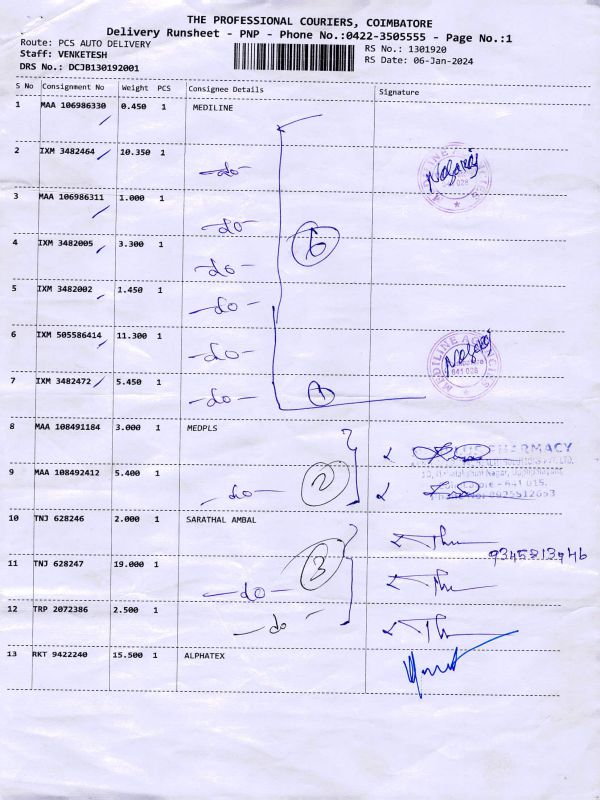 THE PROFESSIONAL COURIERS, COIMBATORE
Delivery Runsheet - PNP - Phone No.:0422-3505555 - Page No.:1
Route: PCS AUTO DELIVERY
RS No.: 1301920
Staff: VENKETESH
RS Date: 06-Jan-2024
DRS No.: DCJB130192001
S No Consignment No Weight PCS Consignee Details Signature
1 MAA 106986330 0.450 1 MEDILINE
2 IXM 3482464 10.350 1 -do-
3 MAA 106986311 1.000 1 -do-
4 IXM 3482005 3.300 1 -do-
6
5 IXM 3482002 1.450 1 -do-
6 IXM 505586414 11.300 1 -do-
7 IXM 3482472 5.450 1 -do-
1
8 MAA 108491184 3.000 1 MEDPLS
PHARMACY
9 MAA 108492412 5.400 1 -do-
2
10 TNJ 628246 2.000 1 SARATHAL AMBAL
9345813946
11 TNJ 628247 19.000 1 -do-
3
12 TRP 2072386 2.500 1 -do-
13 RKT 9422240 15.500 1 ALPHATEX